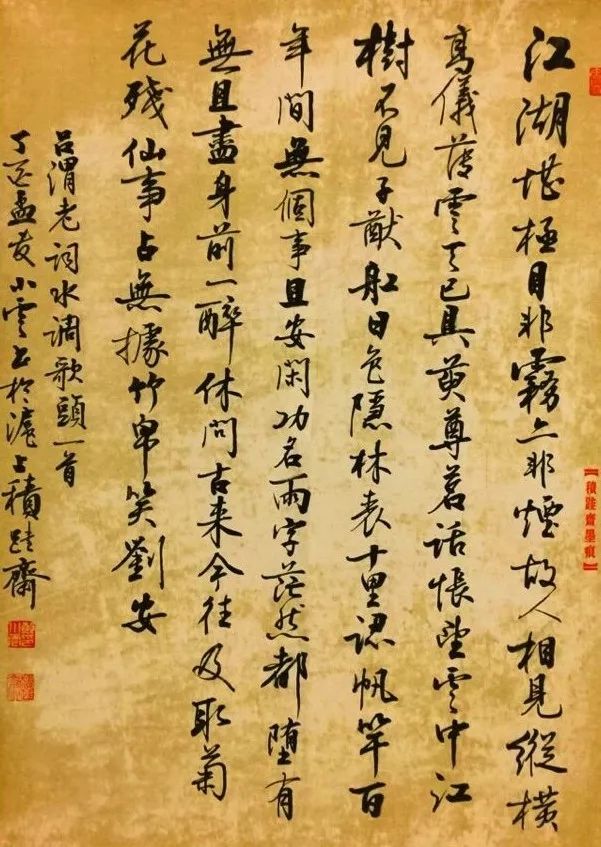 江湖堪極目非霧亦非煙故人相見縱橫
高儀薄雲天已具萸尊茗話悵望雲中江
樹不見子猷船日色隱林表十里認帆竿百
年間無個事且安閑功名兩字茫然都墮有
無且盡身前一醉休問古来今往及取菊
花殘仙事占無據竹帛笑劉安
呂渭老詞水調歌頭一首
丁酉孟 小雲書於滬上積跬齋
【積跬齋墨痕】